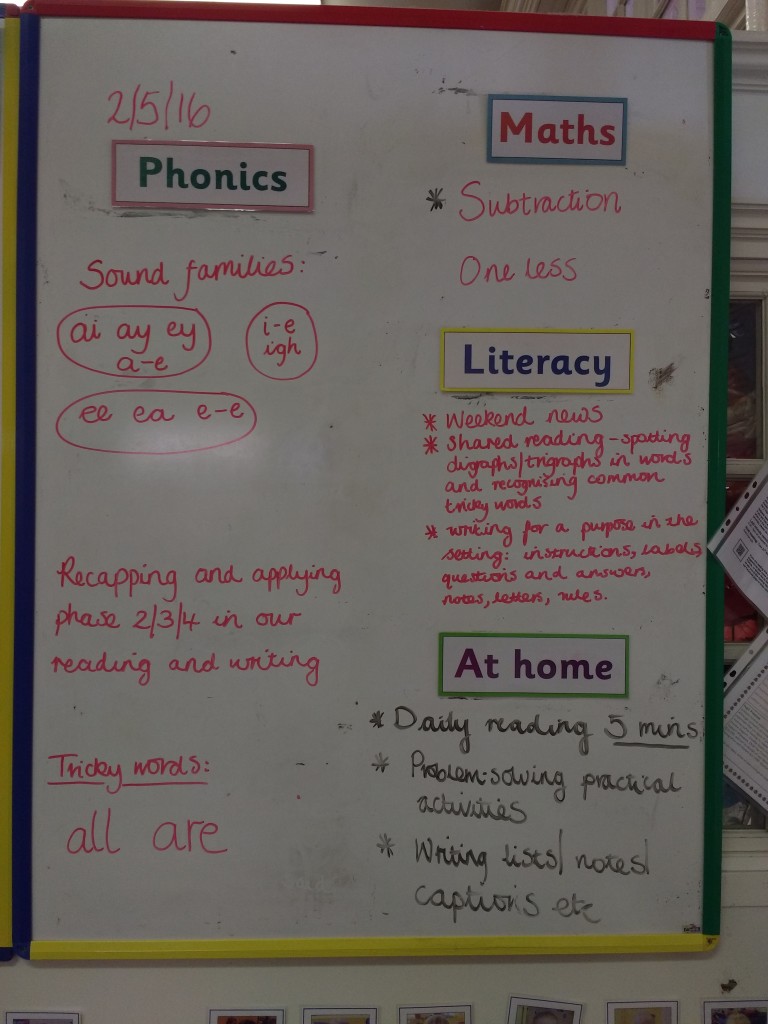 2/5/16
Phonics
Sound families:
ai ay ey
a-e
i-e
igh
ee ea e-e
Recapping and applying
phase 2/3/4 in our
reading and writing
Tricky words:
all are
Maths
* Subtraction
One less
Literacy
* Weekend news
* Shared reading - spotting
digraphs/trigraphs in words
and recognising common
tricky words
* writing for a purpose in the
setting: instructions, labels,
questions and answers,
notes, letters, rules.
At home
* Daily reading 5 mins
* Problem-solving practical
activities
* Writing lists/ notes/
captions etc